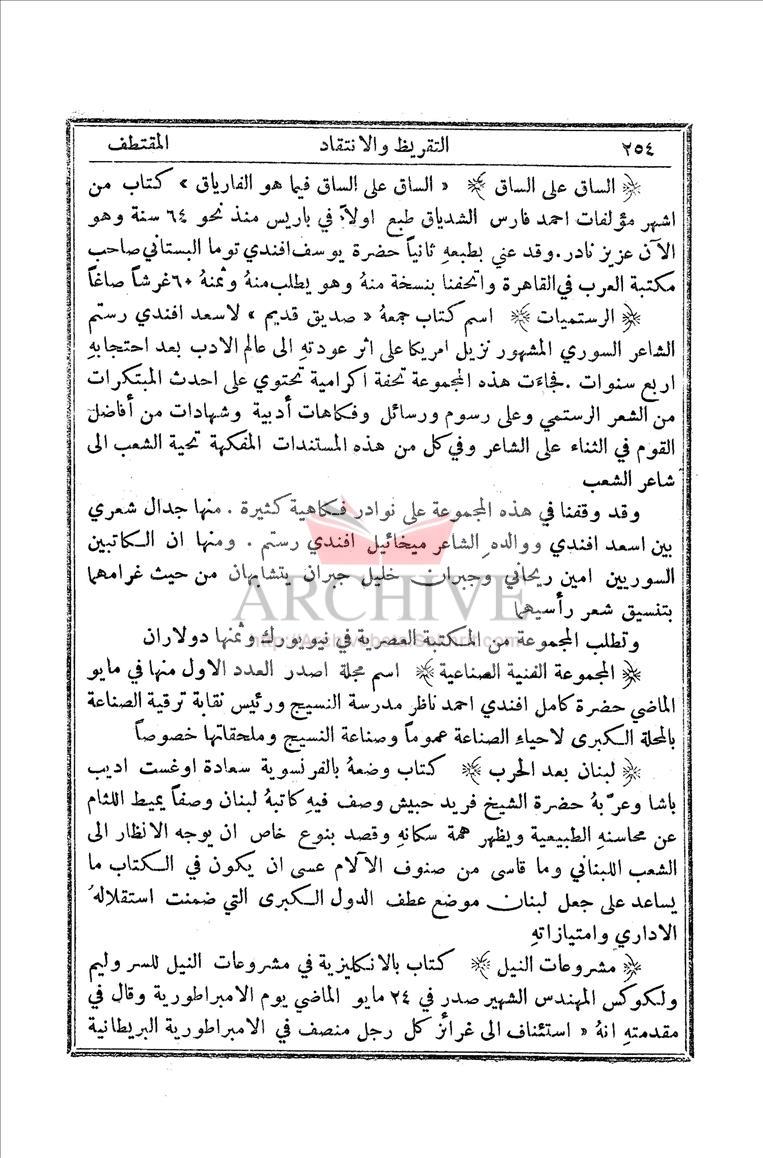 ٢٥٤ التقريظ والانتقاد المقتطف
﴿ الساق على الساق ﴾ « الساق على الساق فيما هو الفارياق » كتاب من
اشهر مؤلفات احمد فارس الشدياق طبع اولاً في باريس منذ نحو ٦٤ سنة وهو
الآن عزيز نادر . وقد عني بطبعهِ ثانياً حضرة يوسف افندي توما البستاني صاحب
مكتبة العرب في القاهرة واتحفنا بنسخة منهُ وهو يطلب منهُ وثمنهُ ٦٠ غرشاً صاغاً
﴿ الرستميات ﴾ اسم كتاب جمعهُ « صديق قديم » لاسعد افندي رستم
الشاعر السوري المشهور نزيل امريكا على اثر عودتهِ الى عالم الادب بعد احتجابهِ
اربع سنوات . فجاءَت هذه المجموعة تحفة اكرامية تحتوي على احدث المبتكرات
من الشعر الرستمي وعلى رسوم ورسائل وفكاهات أدبية وشهادات من أفاضل
القوم في الثناء على الشاعر وفي كل من هذه المستندات المفكهة تحية الشعب الى
شاعر الشعب
وقد وقفنا في هذه المجموعة على نوادر فكاهية كثيرة . منها جدال شعري
بين اسعد افندي ووالده ِ الشاعر ميخائيل افندي رستم . ومنها ان الكاتبين
السوريين امين ريحاني وجبران خليل جبران يتشابهان من حيث غرامهما
بتنسيق شعر رأسيهما
ARCHIVE
وتطلب المجموعة من المكتبة العصرية في نيويورك وثمنها دولاران
﴿ المجموعة الفنية الصناعية ﴾ اسم مجلة اصدر العدد الاول منها في مايو
الماضي حضرة كامل افندي احمد ناظر مدرسة النسيج ورئيس نقابة ترقية الصناعة
بالمحلة الكبرى لاحياء الصناعة عموماً وصناعة النسيج وملحقاتها خصوصاً
﴿ لبنان بعد الحرب ﴾ كتاب وضعهُ بالفرنسوية سعادة اوغست اديب
باشا وعرّبهُ حضرة الشيخ فريد حبيش وصف فيهِ كاتبهُ لبنان وصفاً يميط اللثام
عن محاسنهِ الطبيعية ويظهر همة سكانهِ وقصد بنوع خاص ان يوجه الانظار الى
الشعب اللبناني وما قاسى من صنوف الآلام عسى ان يكون في الكتاب ما
يساعد على جعل لبنان موضع عطف الدول الكبرى التي ضمنت استقلالهُ
الاداري وامتيازاتهِ
﴿ مشروعات النيل ﴾ كتاب بالانكليزية في مشروعات النيل للسر وليم
ولكوكس المهندس الشهير صدر في ٢٤ مايو الماضي يوم الامبراطورية وقال في
مقدمتهِ انهُ « استئناف الى غرائز كل رجل منصف في الامبراطورية البريطانية